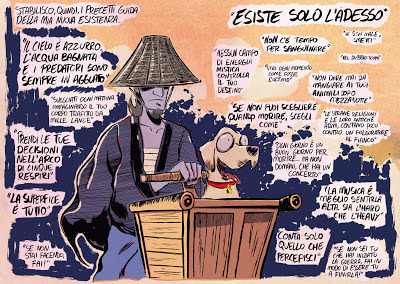 STABILISCO, QUINDI, I PRECETTI GUIDA
DELLA MIA NUOVA ESISTENZA...
"ESISTE SOLO L'ADESSO"
"IL CIELO È AZZURRO,
L'ACQUA BAGNATA
E I PREDATORI SONO
SEMPRE IN AGGUATO"
"NON C'È TEMPO
PER SANGUINARE"
"SE STAI MALE,
"NEL DUBBIO
"NESSUN CAMPO
DI ENERGIA
MISTICA
CONTROLLA
IL TUO
DESTINO"
"VIVI OGNI MOMENTO
COME FOSSE
L'ULTIMO"
"NON DARE MAI DA
MANGIARE AI TUOI
ANIMALI DOPO
MEZZANOTTE"
"SVEGLIATI OGNI MATTINA
IMMAGINANDO IL TUO
CORPO TRAFITTO DA
MILLE LANCE"
"SE NON PUOI SCEGLIERE
QUANDO MORIRE, SCEGLI
COME"
"LE STRANE RELIGIONI
E LE LORO ANTICHE
ARMI, CONTANO POCO
CONTRO UN FOLGORATORE
AL FIANCO"
"PRENDI LE TUE
DECISIONI
NELL'ARCO
DI CINQUE
RESPIRI"
"OGNI GIORNO È UN
BUON GIORNO PER
MORIRE... MA NON
DOMANI, CHE HAI UN
CONCERTO"
"LA SUPERFICE
È TUTTO"
"LA MUSICA È
MEGLIO SENTIRLA
ALTA SIA L'HARD
CHE L'HEAVY"
"CONTA SOLO
QUELLO CHE
PERCEPISCI"
"SE NON
STAI
FACENDO,
FAI!"
"SE NON SEI TU
CHE HAI INIZIATO
LA GUERRA, FAI IN
MODO DI ESSERE TU
A FINIRLA!"